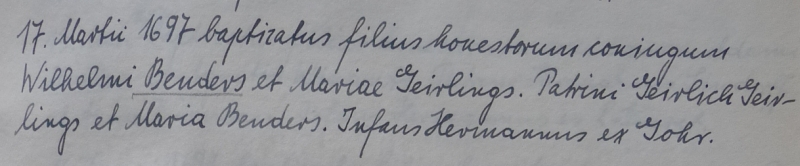 17. Martii 1697 baptizatus filius honestorum coniugum
Wilhelmi Benders et Mariae Geirlings. Patrini Geirlich Geir-
lings et Maria Benders. Infans Hermannus ex Gohr.